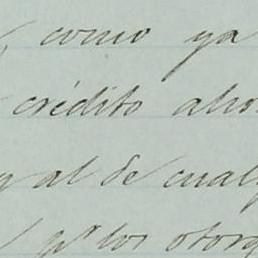 , como ya
crédito aho
y al de cual
pr los otorg